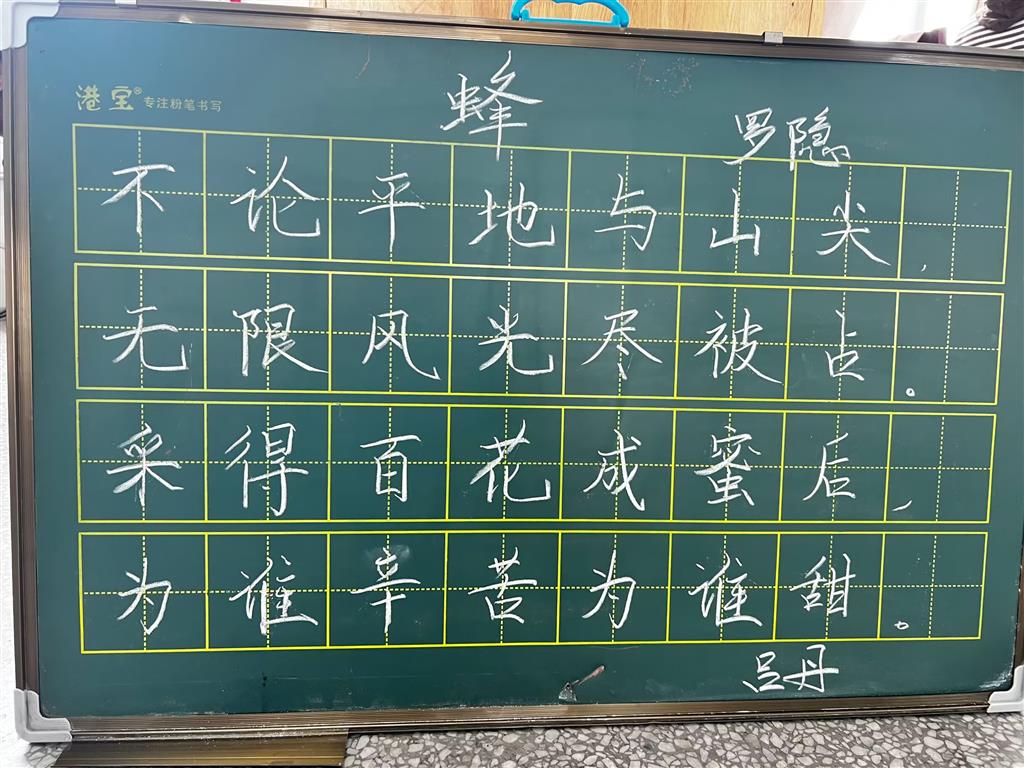 港宝® 专注粉笔书写
蜂
罗隐
不论平地与山尖，
无限风光尽被占。
采得百花成蜜后，
为谁辛苦为谁甜。
吕丹